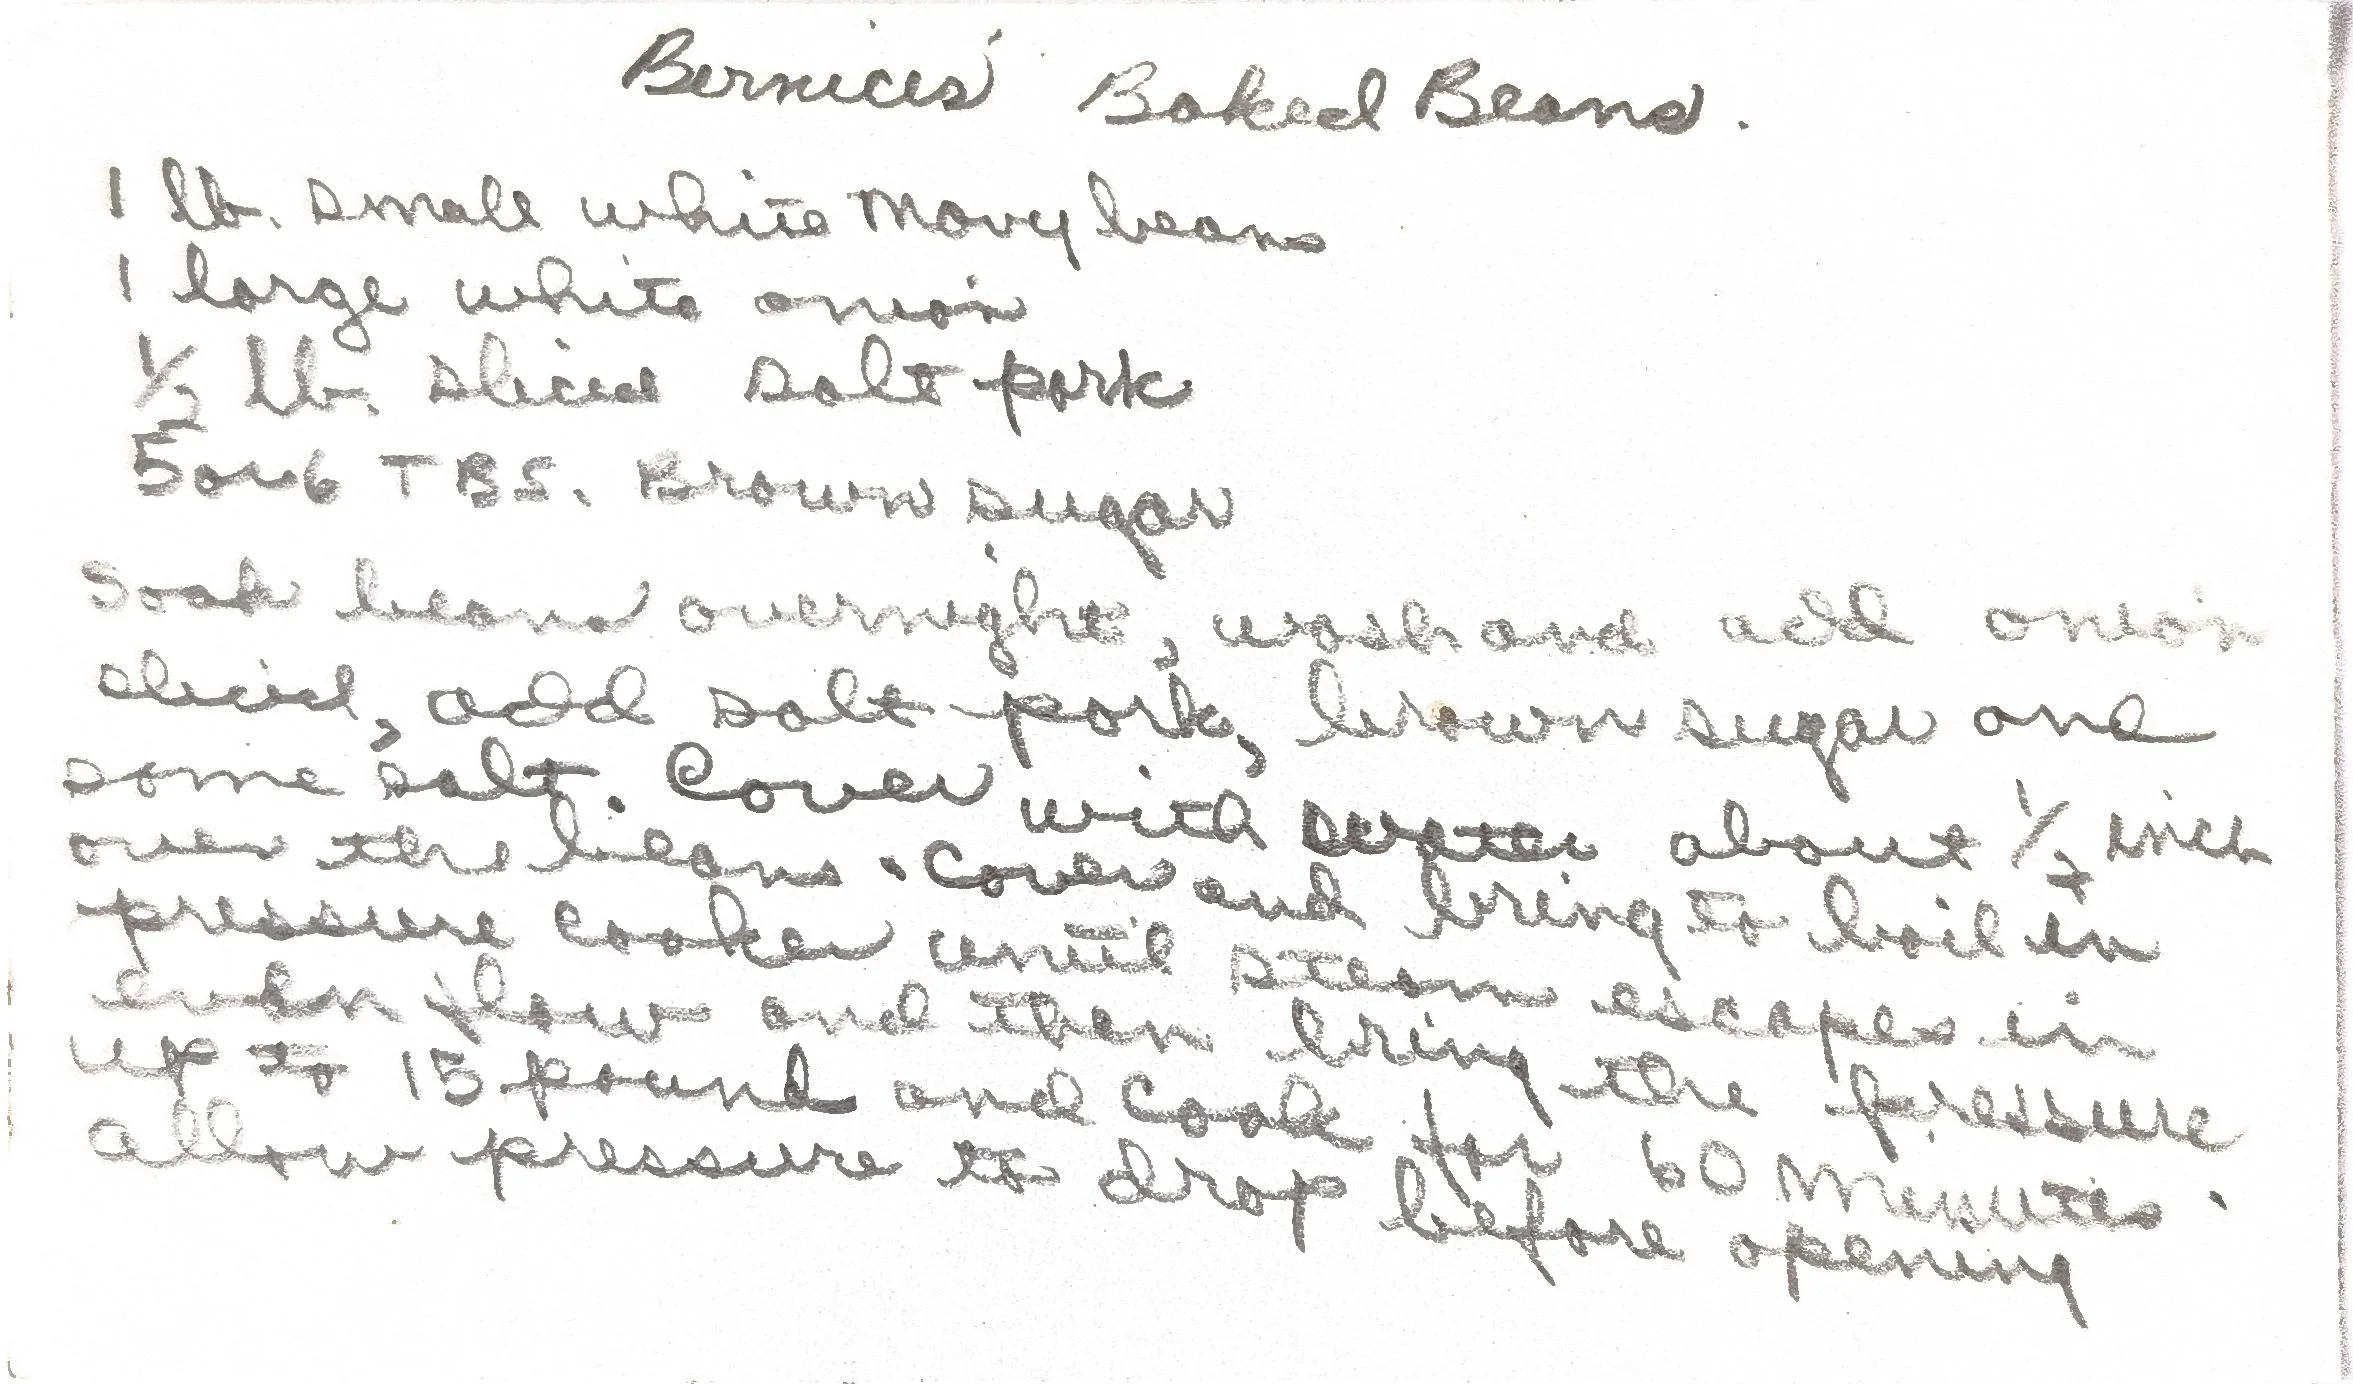 Bernices' Baked Beans.
1 lb. small white Navy beans
1 large white onion
1/2 lb. sliced salt pork
5 or 6 TBS. Brown sugar
Soak beans overnight, wash and add onion
sliced, add salt pork, brown sugar and
some salt. Cover with water about 1/2 inch
over the beans. Cover and bring to boil in
pressure cooker until steam escapes in
even flow and then bring the pressure
up to 15 pound and cook for 60 minutes.
allow pressure to drop before opening